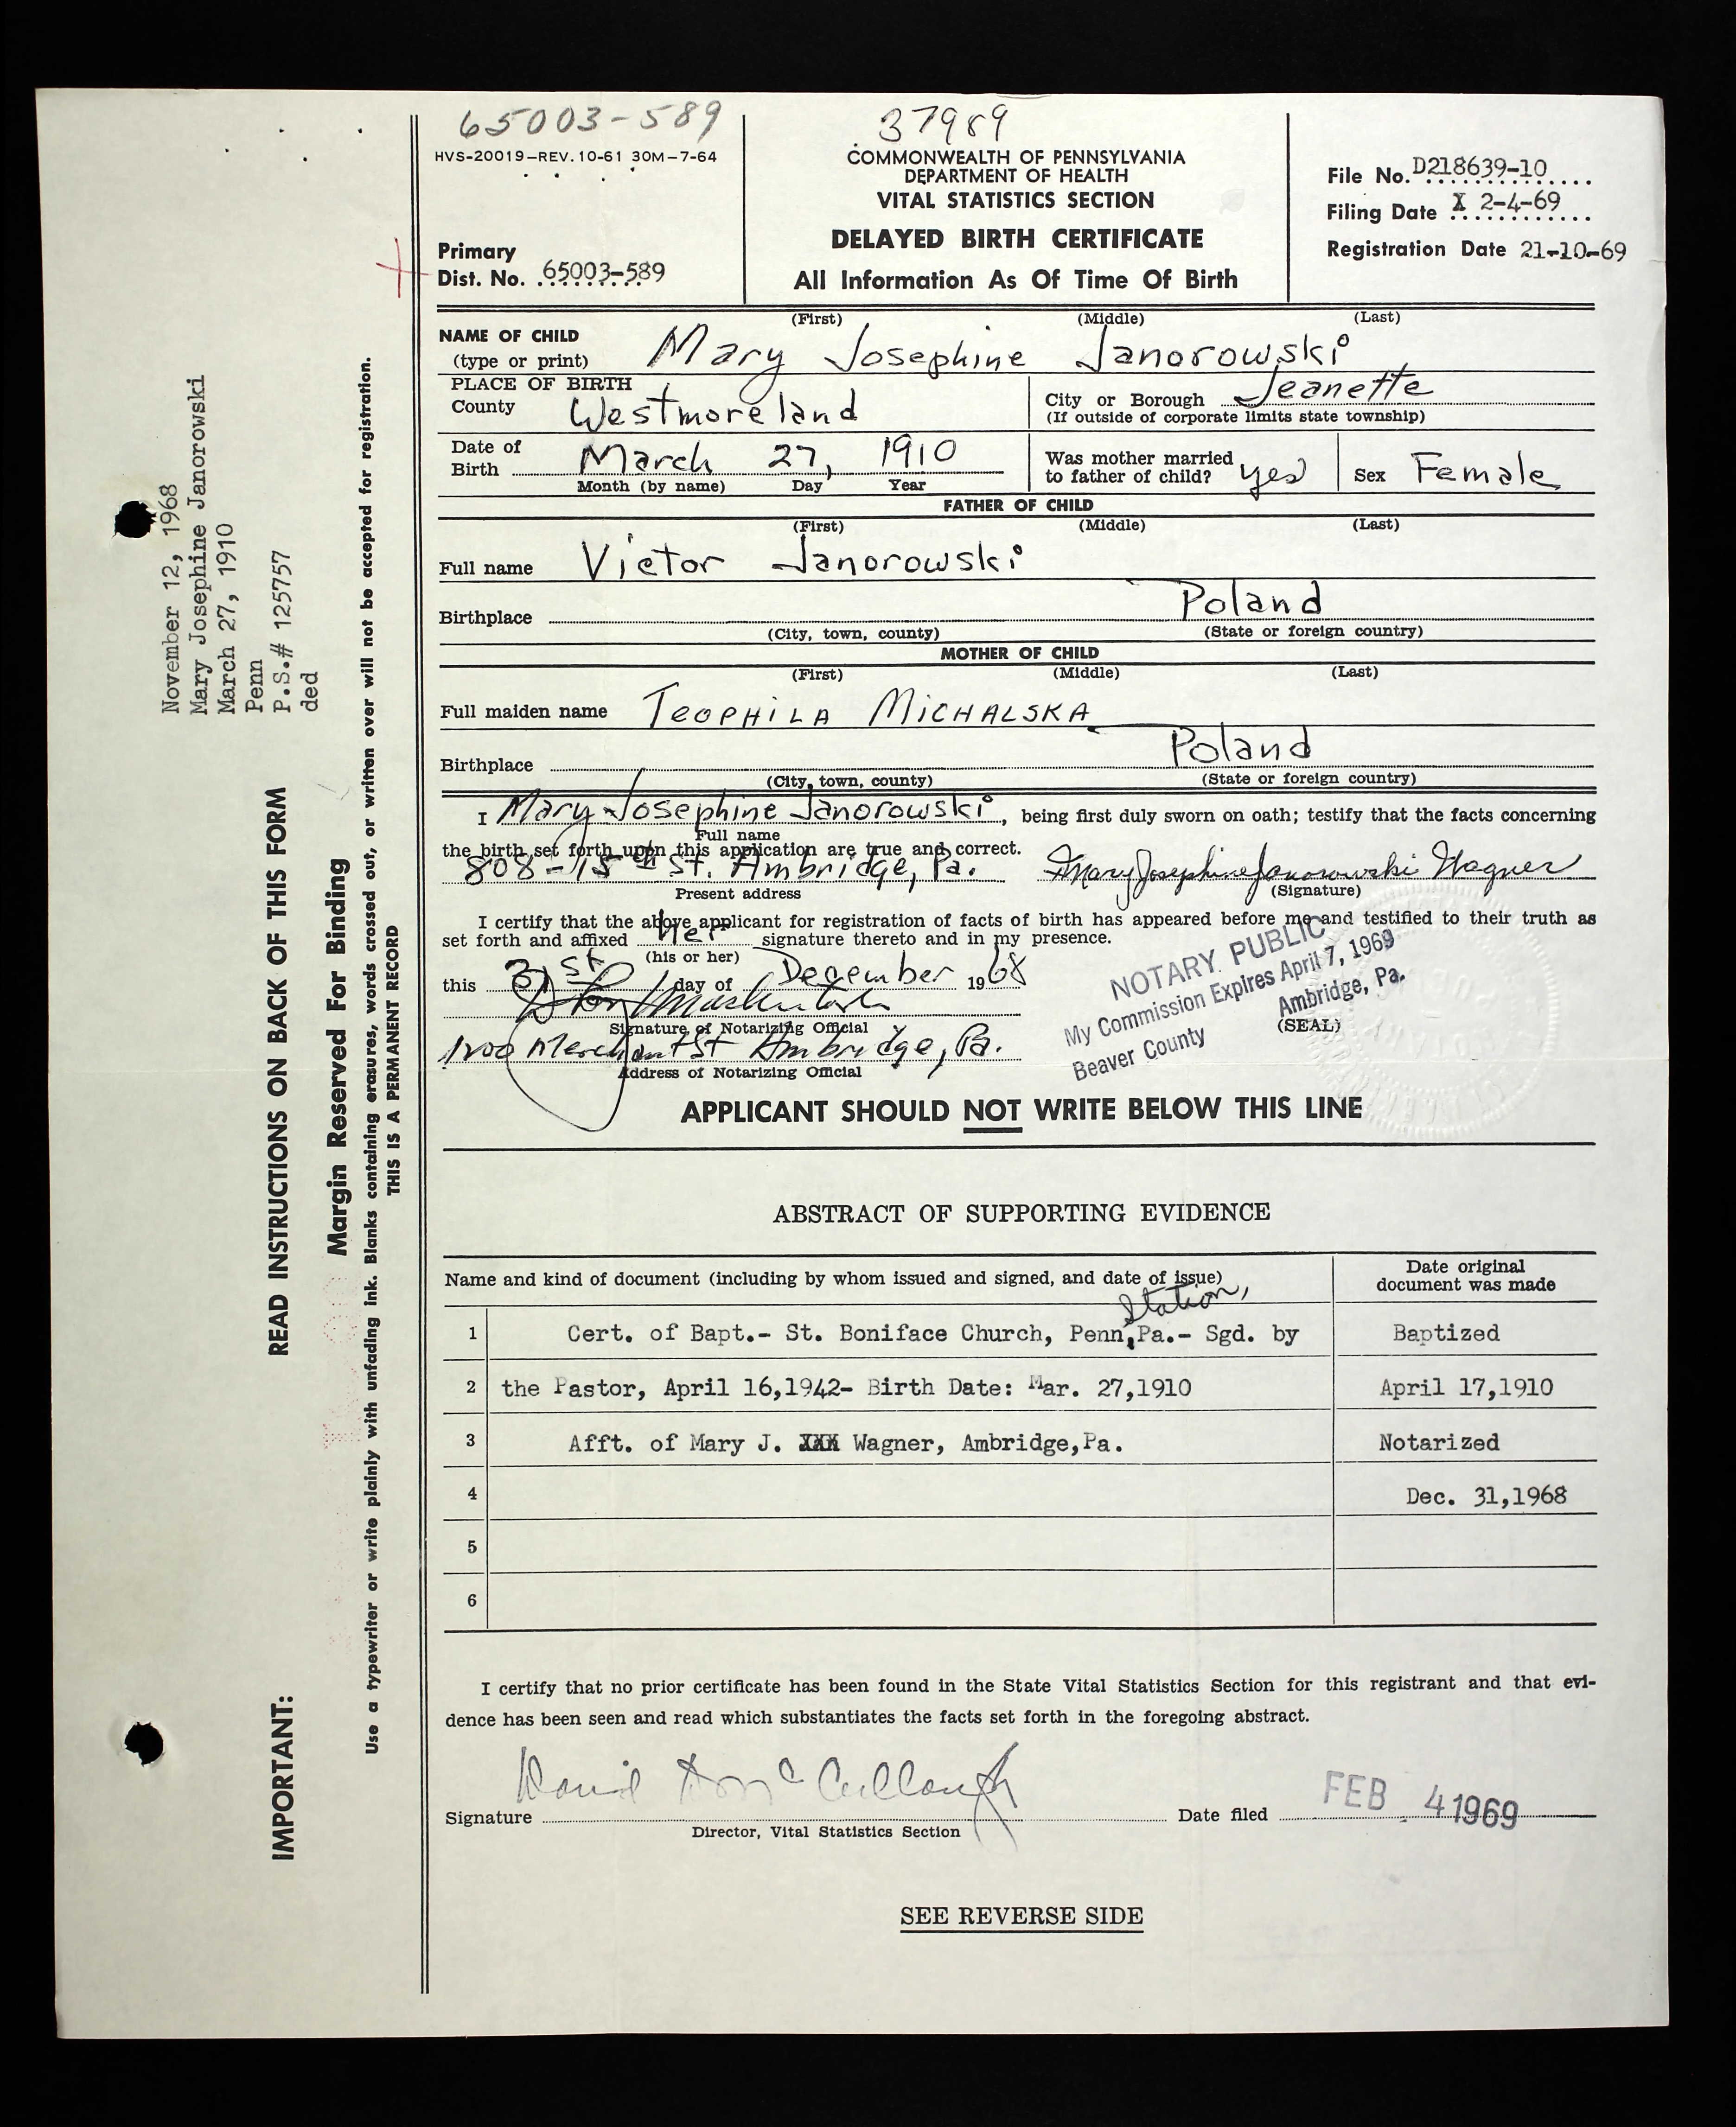 65003-589
HVS-20019-REV. 10-61 30M-7-64
Primary
Dist. No. 65003-589
37989
COMMONWEALTH OF PENNSYLVANIA
DEPARTMENT OF HEALTH
VITAL STATISTICS SECTION
DELAYED BIRTH CERTIFICATE
All Information As Of Time Of Birth
File No. D218639-10
Filing Date X 2-4-69
Registration Date 21-10-69
(First) (Middle) (Last)
NAME OF CHILD
(type or print) Mary Josephine Janorowski
PLACE OF BIRTH
County Westmoreland
City or Borough Jeanette
(If outside of corporate limits state township)
Date of
Birth March 27, 1910
Month (by name) Day Year
Was mother married
to father of child? yes
Sex Female
FATHER OF CHILD
(First) (Middle) (Last)
Full name Victor Janorowski
Birthplace Poland
(City, town, county) (State or foreign country)
MOTHER OF CHILD
(First) (Middle) (Last)
Full maiden name TEOPHILA MICHALSKA
Birthplace Poland
(City, town, county) (State or foreign country)
I Mary Josephine Janorowski, being first duly sworn on oath; testify that the facts concerning
Full name
the birth set forth upon this application are true and correct.
808-15th St. Ambridge, Pa. Mary Josephine Janorowski Wagner
Present address (Signature)
I certify that the above applicant for registration of facts of birth has appeared before me and testified to their truth as
set forth and affixed her signature thereto and in my presence.
(his or her)
this 31st day of December 1968
Signature of Notarizing Official
1200 Merchant St Ambridge, Pa.
Address of Notarizing Official
NOTARY PUBLIC
My Commission Expires April 7, 1969
Ambridge, Pa.
Beaver County
(SEAL)
APPLICANT SHOULD NOT WRITE BELOW THIS LINE
ABSTRACT OF SUPPORTING EVIDENCE
Name and kind of document (including by whom issued and signed, and date of issue)
Date original
document was made
Station,
1 Cert. of Bapt.- St. Boniface Church, Penn, Pa.- Sgd. by Baptized
2 the Pastor, April 16,1942- Birth Date: Mar. 27,1910 April 17,1910
3 Afft. of Mary J. XXX Wagner, Ambridge,Pa. Notarized
4 Dec. 31,1968
5
6
I certify that no prior certificate has been found in the State Vital Statistics Section for this registrant and that evi-
dence has been seen and read which substantiates the facts set forth in the foregoing abstract.
Signature David McCullough
Director, Vital Statistics Section
Date filed FEB 4 1969
SEE REVERSE SIDE
November 12, 1968
Mary Josephine Janorowski
March 27, 1910
Penn
P.S.# 125757
ded
IMPORTANT: READ INSTRUCTIONS ON BACK OF THIS FORM
Margin Reserved For Binding
Use a typewriter or write plainly with unfading ink. Blanks containing erasures, words crossed out, or written over will not be accepted for registration.
THIS IS A PERMANENT RECORD